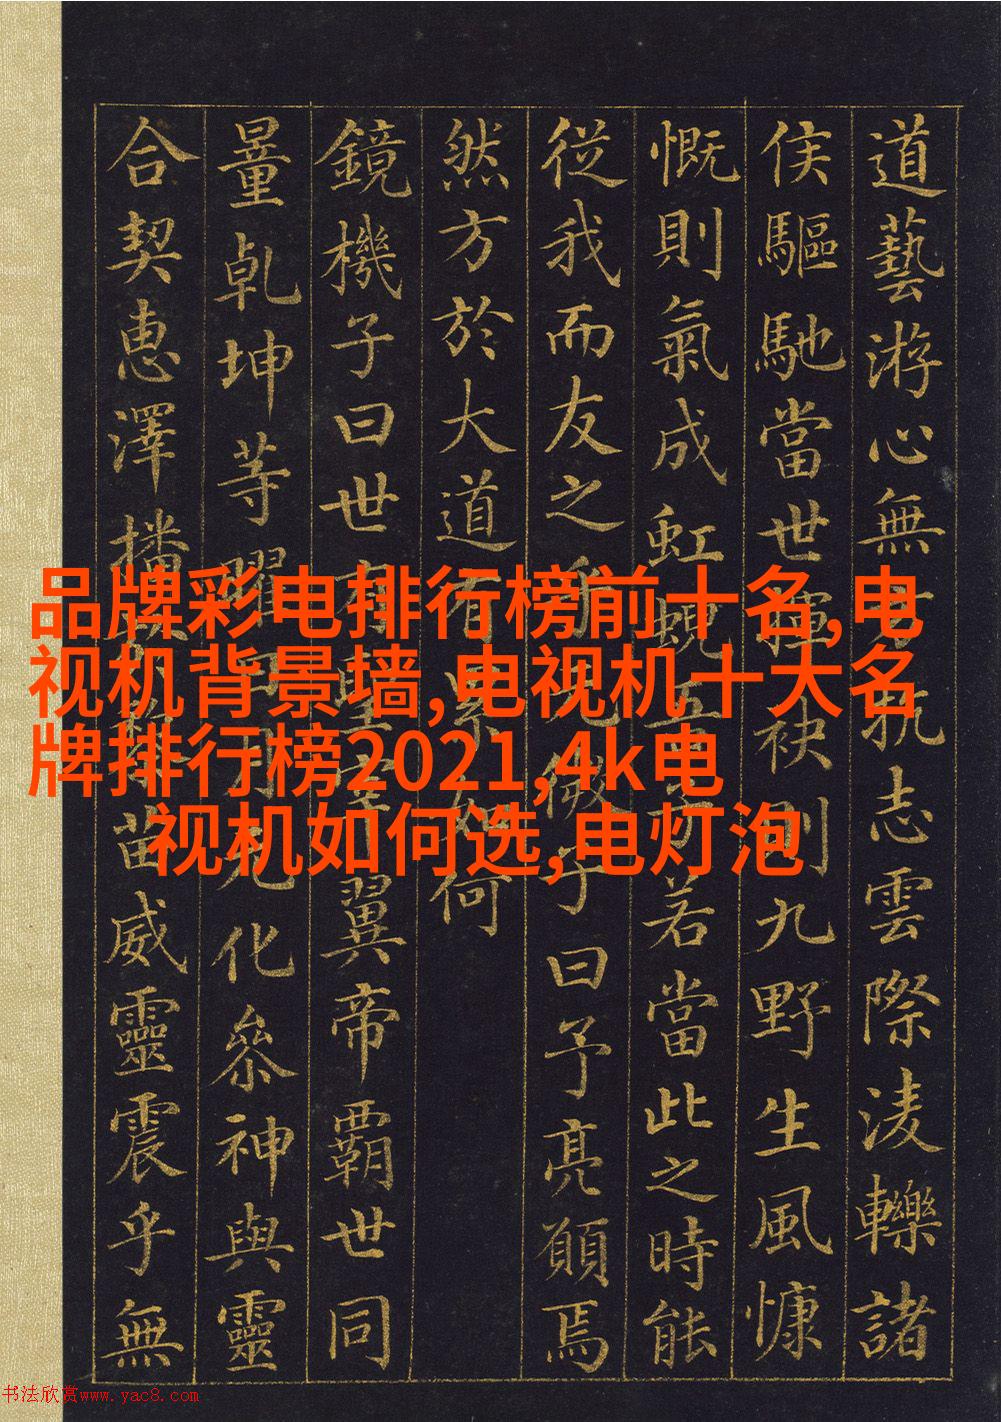 道藝游心無抗志雲際淩轢諸
侯驅馳當世揮袂則九野生風慷
慨則氣成虹蜺吾子若當此之時能
從我而友之微子曰予亮願焉
然方於大道有累如何
鏡機子曰世有聖宰翼帝霸世同
量乾坤等曜日月玄化參神與靈
合契惠澤播苗威靈震乎無
品牌彩电排行榜前十名,电
视机背景墙,电视机十大名
牌排行榜2021,4k电
视机如何选,电灯泡
书法欣赏www.yac8.com